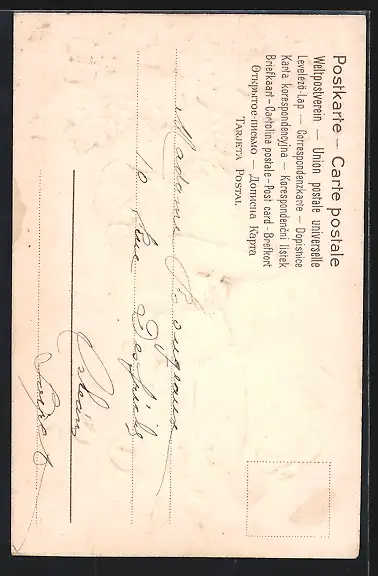 Postkarte — Carte postale
Weltpostverein — Union postale universelle
Levelező-Lap — Correspondenzkarte — Dopisnice
Karta korespondencyjna — Korespondenční listek
Briefkaart – Cartolina postale – Post card – Brefkort
Открытое письмо — Дописна Карта
TARJETA POSTAL
Madame
10 Rue
Loiret